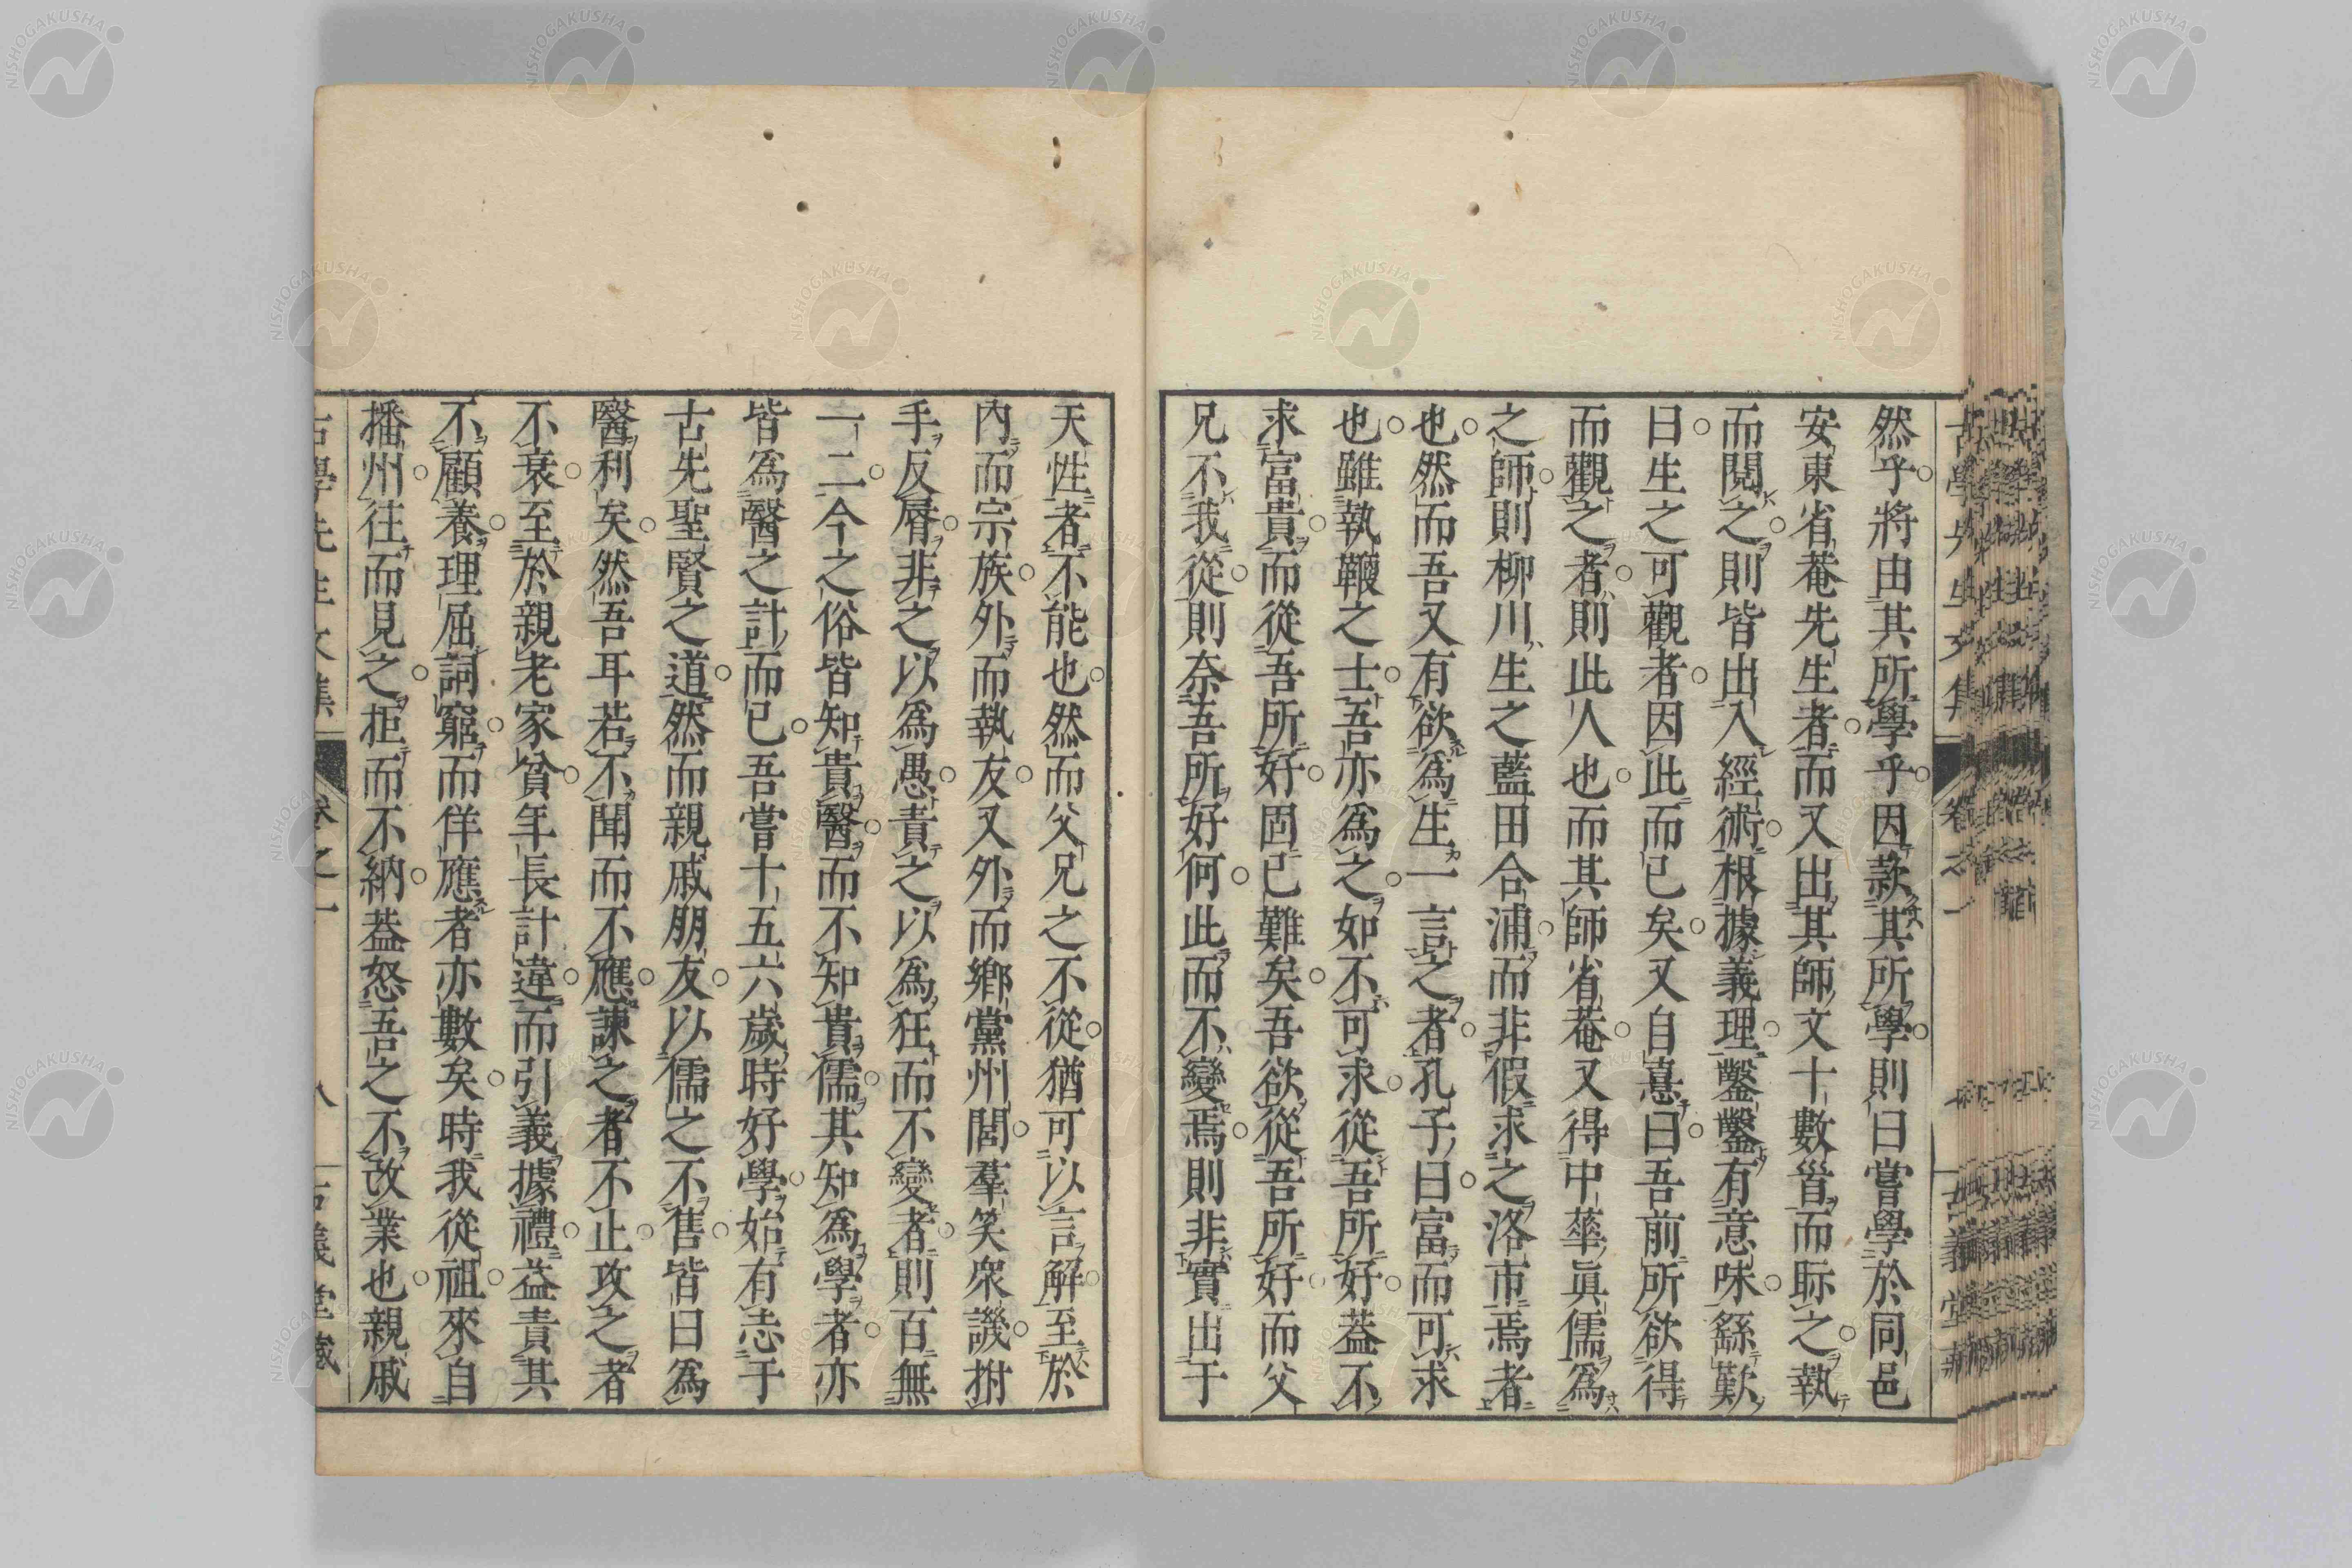 然乎將由其所學乎因款其所學則曰嘗學於同邑
安東省菴先生者而又出其師文十數首而眎之執
而閱之則皆出入經術根據義理鑿鑿有意味繇歎
曰生之可觀者因此而已矣又自憙曰吾前所欲得
而觀之者則此人也而其師省菴又得中華眞儒爲
之師則柳川生之藍田合浦而非假求之洛市焉者
也然而吾又有欲爲生一言之者孔子曰富而可求
也雖執鞭之士吾亦爲之如不可求從吾所好蓋不
求富貴而從吾所好固已難矣吾欲從吾所好而父
兄不我從則奈吾所好何此而不變焉則非實出于
天性者不能也然而父兄之不從猶可以言解至於
內而宗族外而執友又外而鄉黨州閭羣笑衆譏拊
手反脣非之以爲愚責之以爲狂而不變者則百無
一二今之俗皆知貴醫而不知貴儒其知爲學者亦
皆爲醫之計而已吾嘗十五六歲時好學始有志于
古先聖賢之道然而親戚朋友以儒之不售皆曰爲
醫利矣然吾耳若不聞而不應諫之者不止攻之者
不衰至於親老家貧年長計違而引義據禮益責其
不顧養理屈詞窮而佯應者亦數矣時我從祖來自
播州往而見之拒而不納蓋怒吾之不改業也親戚
古學先生文集 卷之一 八 古義堂藏